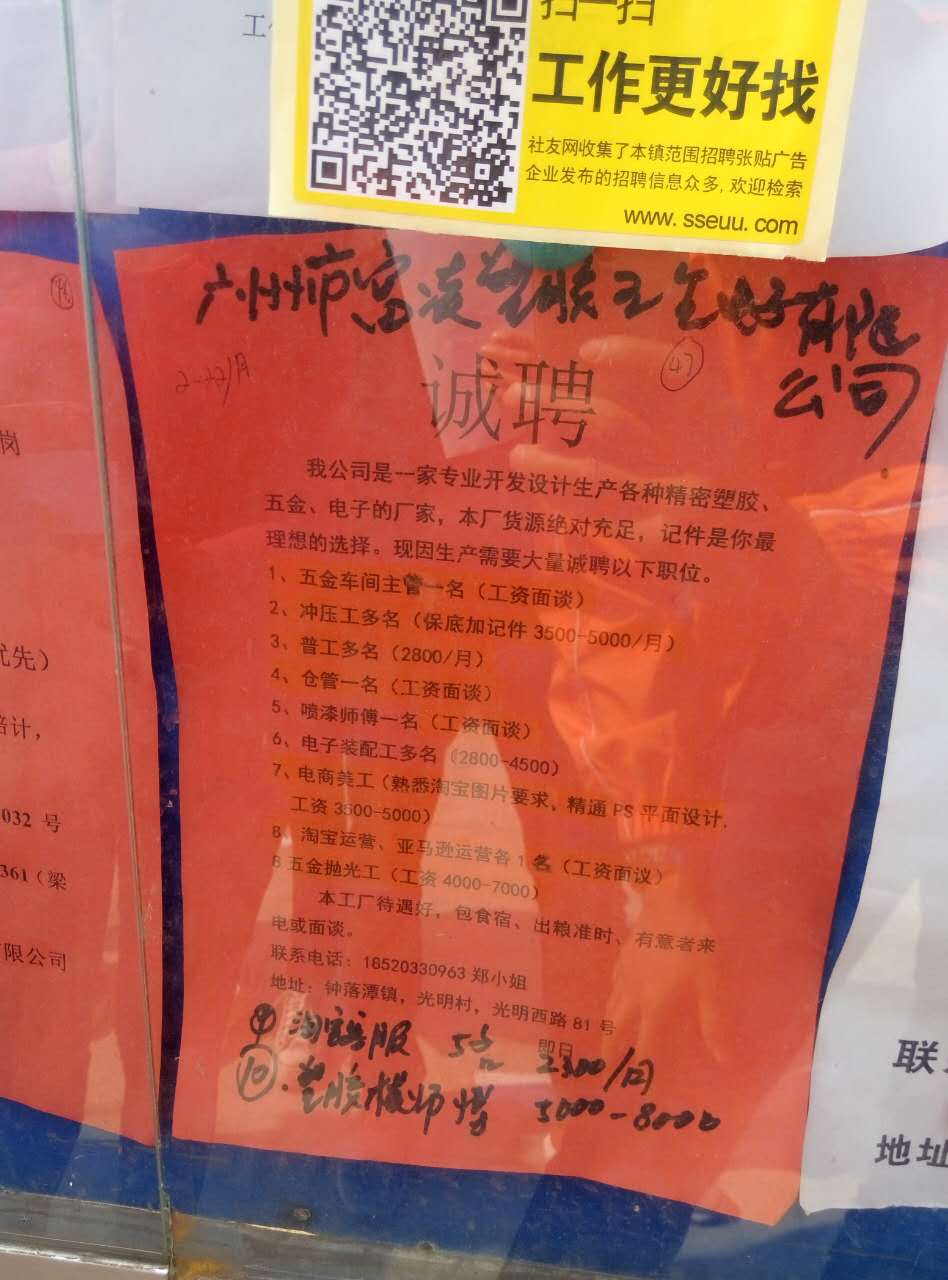 工
扫一扫
工作更好找
社友网收集了本镇范围招聘张贴广告
企业发布的招聘信息众多,欢迎检索
www. sseuu. com
广州市富凌塑胶五金电子有限
公司
2-22/月
47
诚聘
我公司是一家专业开发设计生产各种精密塑胶、
五金、电子的厂家，本厂货源绝对充足，记件是你最
理想的选择。现因生产需要大量诚聘以下职位。
1、五金车间主管一名（工资面谈）
2、冲压工多名（保底加记件 3500-5000/月）
3、普工多名（2800/月）
4、仓管一名（工资面谈）
5、喷漆师傅一名（工资面谈）
6、电子装配工多名（2800-4500）
7、电商美工（熟悉淘宝图片要求，精通 PS 平面设计，
工资 3500-5000）
8、淘宝运营、亚马逊运营各 1 名（工资面议）
8 五金抛光工（工资 4000-7000）
本工厂待遇好，包食宿、出粮准时、有意者来
电或面谈。
联系电话：18520330963 郑小姐
地址：钟落潭镇，光明村，光明西路 81 号
即日
⑨ 淘宝客服 5名 2300/月
⑩. 塑胶模师傅 5000-8000
岗
优先）
计，
032 号
361（梁
有限公司
联
地址